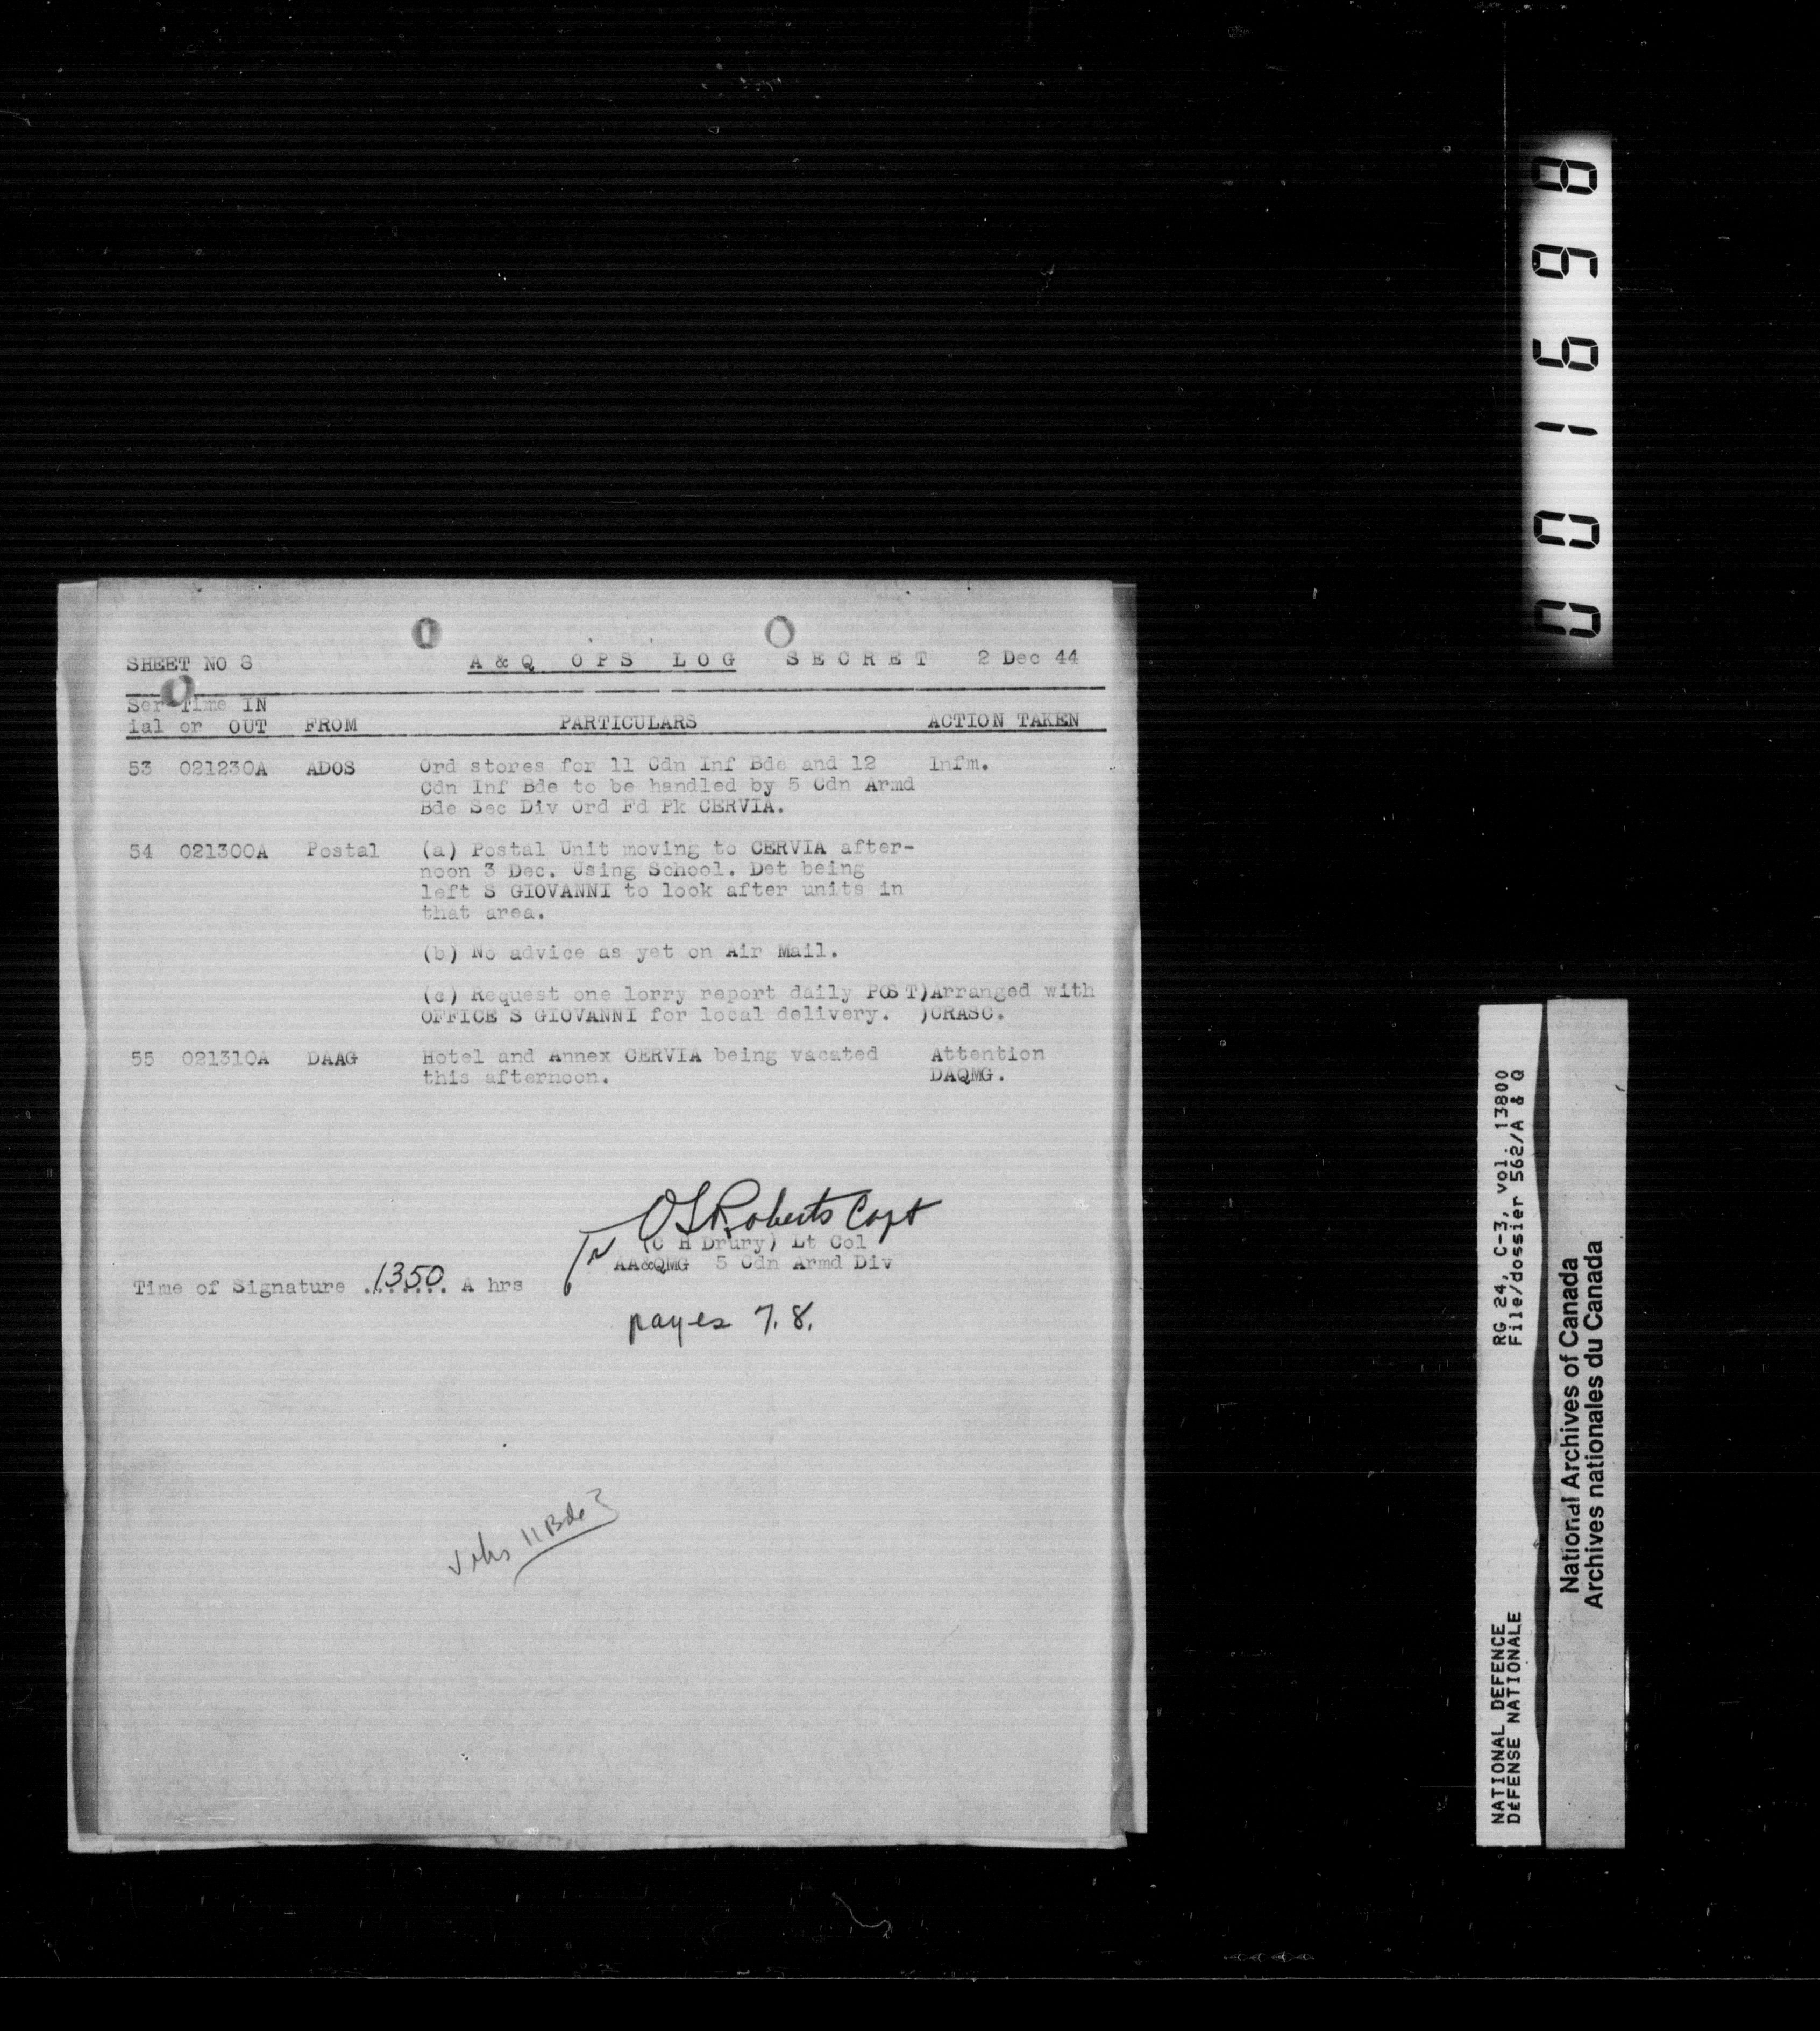 SHEET NO 8 A & Q OPS LOG SECRET 2 Dec 44
Ser Time IN
ial or OUT FROM PARTICULARS ACTION TAKEN
53 021230A ADOS Ord stores for 11 Cdn Inf Bde and 12 Infm.
Cdn Inf Bde to be handled by 5 Cdn Armd
Bde Sec Div Ord Fd Pk CERVIA.
54 021300A Postal (a) Postal Unit moving to CERVIA after-
noon 3 Dec. Using School. Det being
left S GIOVANNI to look after units in
that area.
(b) No advice as yet on Air Mail.
(c) Request one lorry report daily POST)Arranged with
OFFICE S GIOVANNI for local delivery. )CRASC.
55 021310A DAAG Hotel and Annex CERVIA being vacated Attention
this afternoon. DAQMG.
OSRoberts Capt
(C H Drury) Lt Col
AA&QMG 5 Cdn Armd Div
Time of Signature .1350. A hrs
pages 7. 8.
11 Bde
001698
RG 24, C-3, vol. 13800
File/dossier 562/A & Q
NATIONAL DEFENCE
DÉFENSE NATIONALE
National Archives of Canada
Archives nationales du Canada